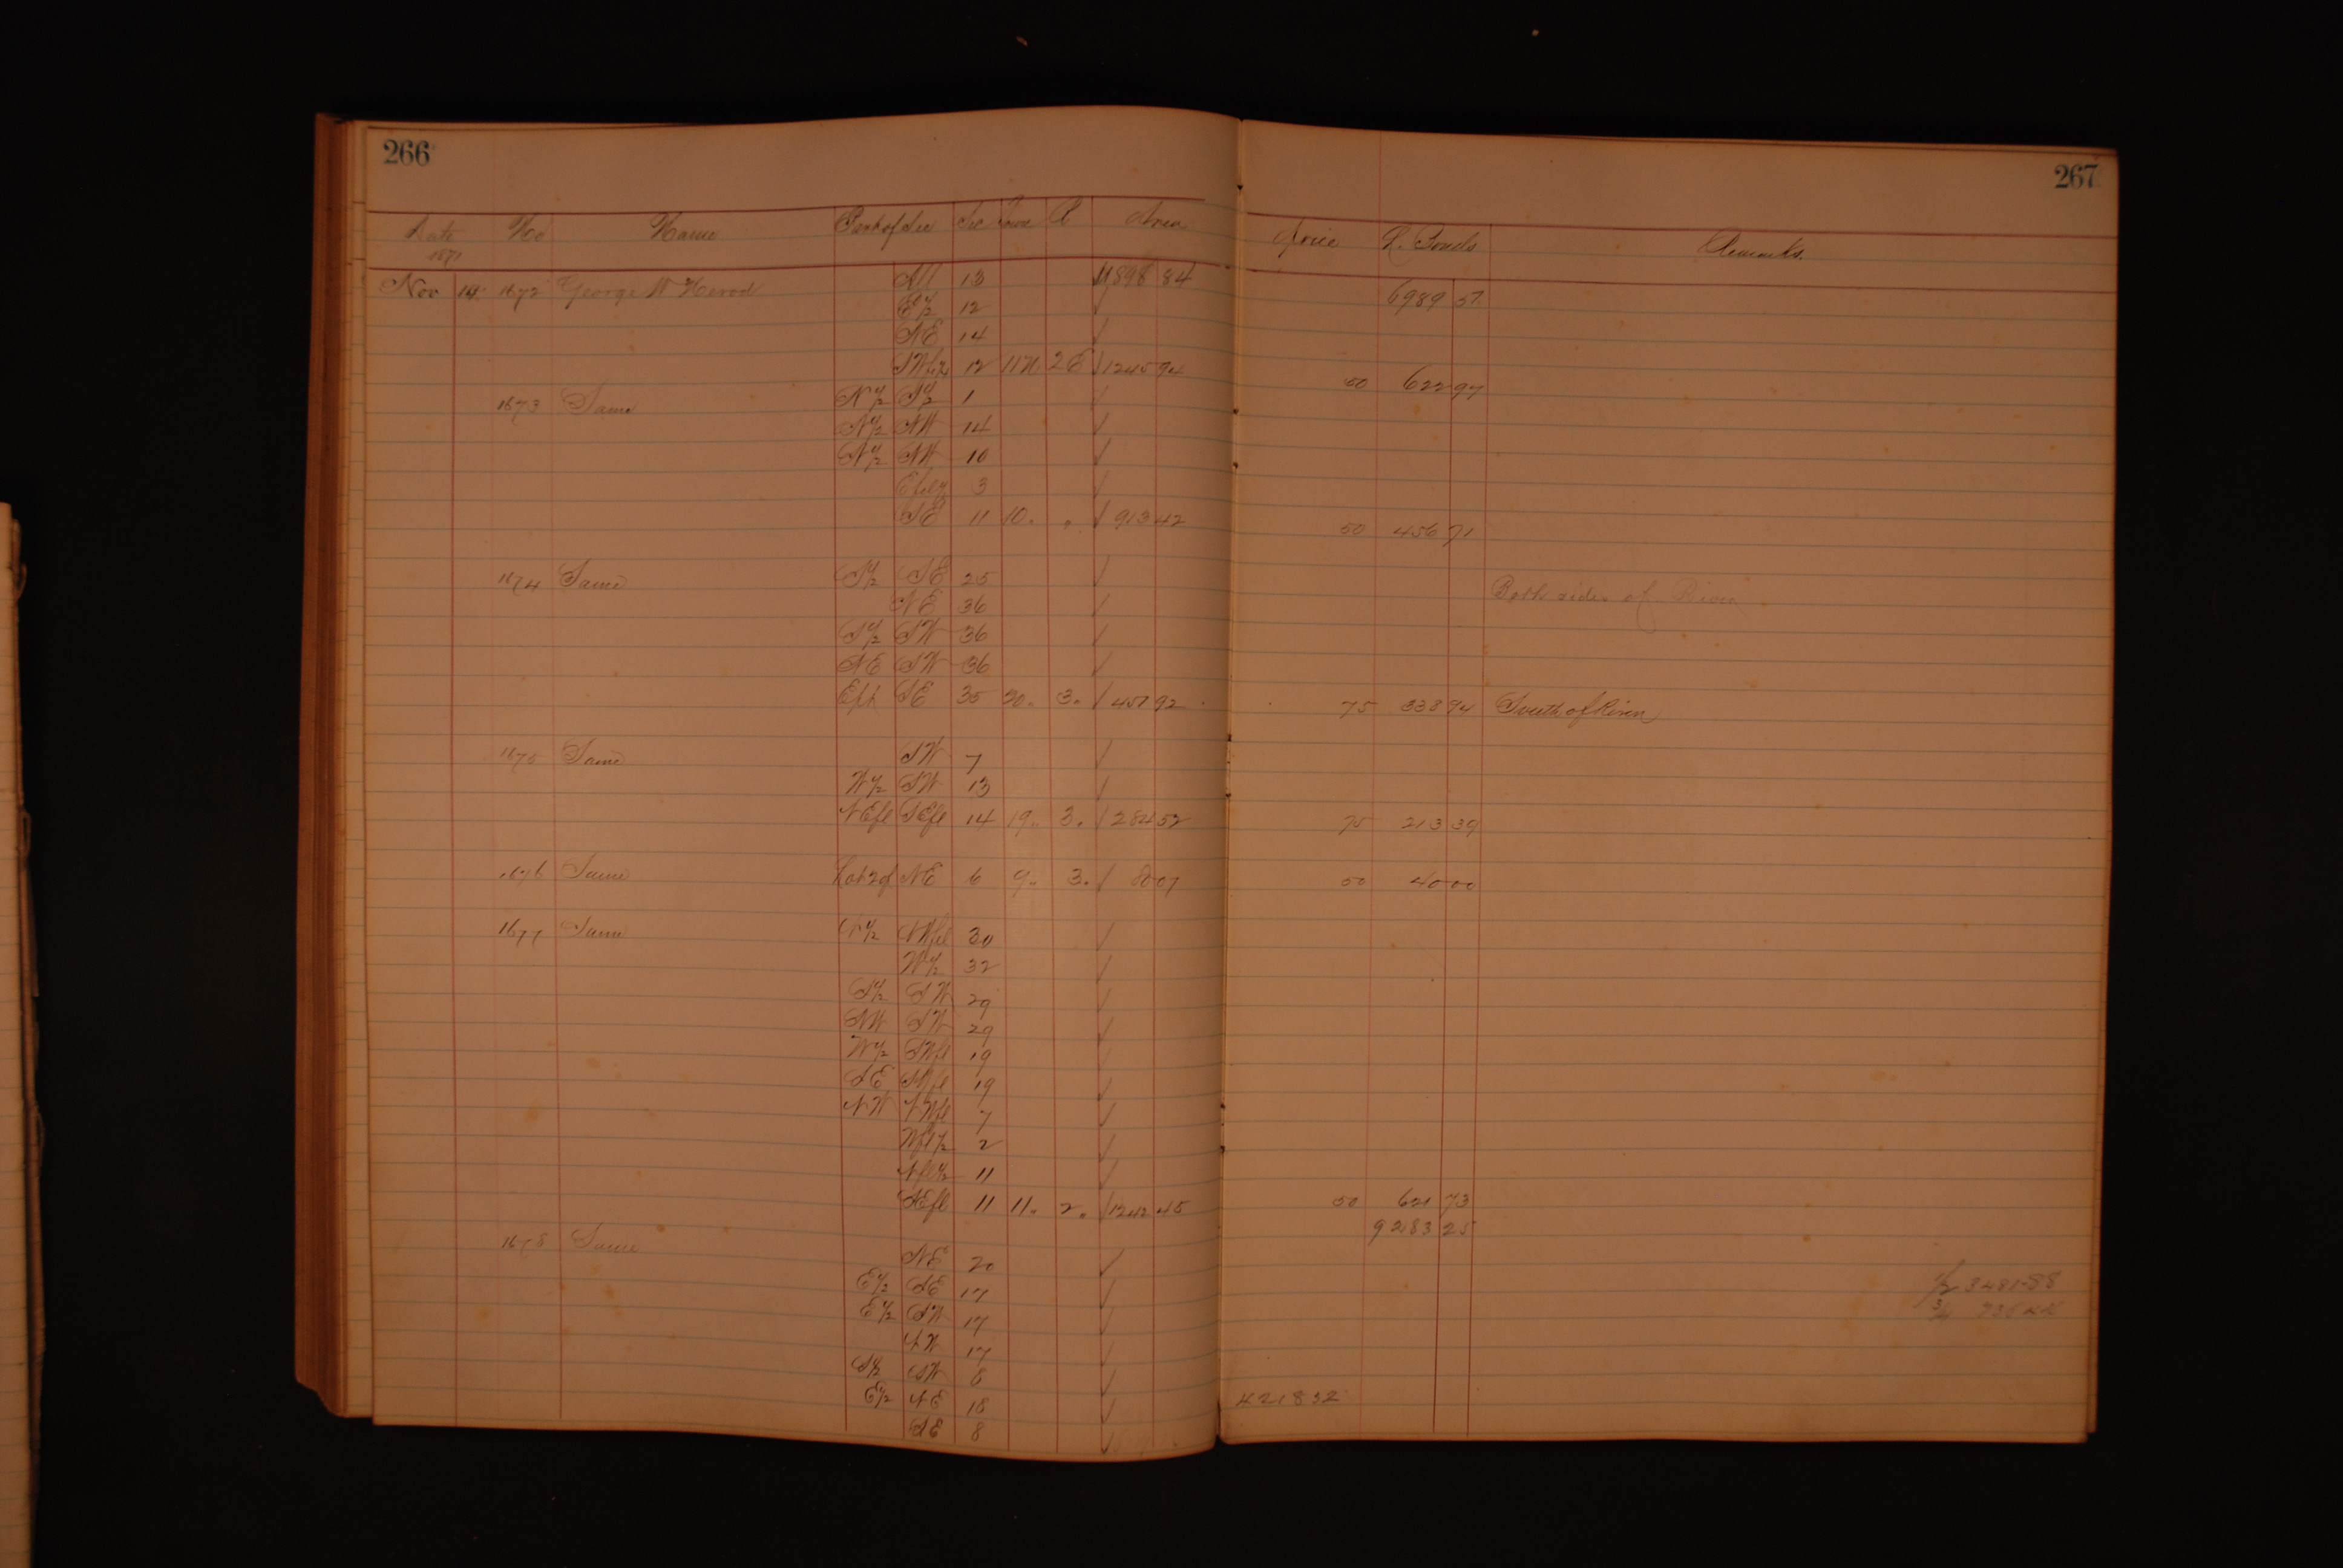 266
Date No Name Part of Sec Sec Town R Area
1871
Nov 14 1672 George W Herod All 13 11898 84
E 1/2 12
NE 14
SW frl 12 11N 2E 1245 94
1673 Same N 1/2 S 1/2 1
N 1/2 NW 14
N 1/2 NW 10
E frl 1/2 3
SE 11 10 " " 913 42
1674 Same S 1/2 SE 25
NE 36
S 1/2 SW 36
NE SW 36
E pt SE 35 20 " 3 " 451 92
1675 Same SW 7
W 1/2 SW 13
NE fl SE fl 14 19 " 3 " 284 52
1676 Same Lot 2 of NE 6 9 " 3 " 80 01
1677 Same N 1/2 NW fl 30
W 1/2 32
S 1/2 SW 29
NW SW 29
W 1/2 SW fl 19
SE SW fl 19
NW NW fl 7
W fl 1/2 2
N fl 1/2 11
SE fl 11 11 " 2 " 1242 45
1678 Same NE 20
E 1/2 SE 17
E 1/2 SW 17
NW 17
S 1/2 SW 8
E 1/2 NE 18
SE 8
267
Price Remarks.
6989 57
50 622 97
50 456 71
Both sides of River
75 338 94 South of River
75 213 39
50 40 00
50 621 73
9283 25
1/2 3481-58
3/4
421832